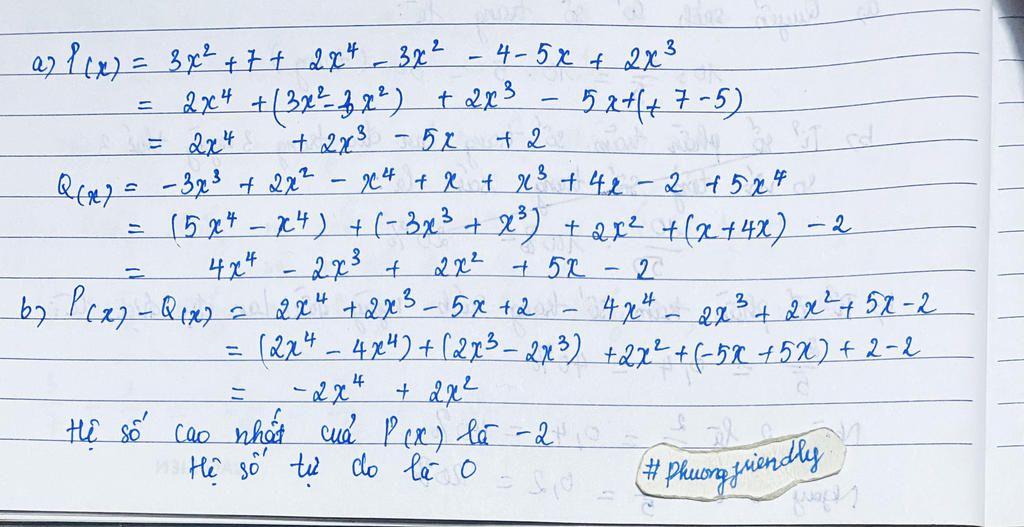 a) P(x) = 3x² + 7 + 2x⁴ - 3x² - 4 - 5x + 2x³
= 2x⁴ + (3x² - 3x²) + 2x³ - 5x + (+ 7 - 5)
= 2x⁴ + 2x³ - 5x + 2
Q(x) = -3x³ + 2x² - x⁴ + x + x³ + 4x - 2 + 5x⁴
= (5x⁴ - x⁴) + (-3x³ + x³) + 2x² + (x + 4x) - 2
= 4x⁴ - 2x³ + 2x² + 5x - 2
b) P(x) - Q(x) = 2x⁴ + 2x³ - 5x + 2 - 4x⁴ - 2x³ + 2x² + 5x - 2
= (2x⁴ - 4x⁴) + (2x³ - 2x³) + 2x² + (-5x + 5x) + 2 - 2
= -2x⁴ + 2x²
Hệ số cao nhất cuả P(x) là -2
Hệ số tự do là 0
#phuongfriendly